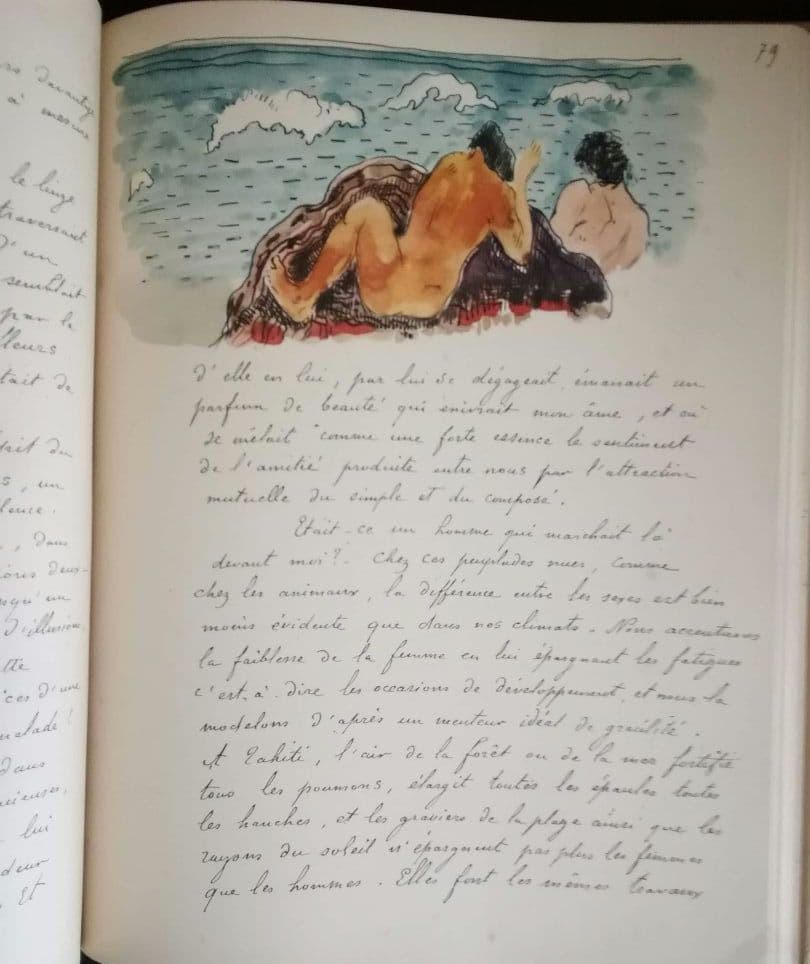 davantage
à mesure
le linge
traversant
d'un
semblait
par la
était de
un
dans
d'illusion
d'une
malade!
dans
lui
Et
79
d'elle en lui, par lui se dégageait, émanait un
parfum de beauté qui enivrait mon âme, et où
se mêlait comme une forte essence le sentiment
de l'amitié produite entre nous par l'attraction
mutuelle du simple et du composé.
Etait-ce un homme qui marchait là
devant moi? - Chez ces peuplades nues, comme
chez les animaux, la différence entre les sexes est bien
moins évidente que dans nos climats. Nous accentuons
la faiblesse de la femme en lui épargnant les fatigues
c'est-à-dire les occasions de développement, et nous la
modelons d'après un menteur idéal de gracilité.
A Tahiti, l'air de la forêt ou de la mer fortifie
tous les poumons, élargit toutes les épaules toutes
les hanches, et les graviers de la plage ainsi que les
rayons du soleil n'épargnent pas plus les femmes
que les hommes. Elles font les mêmes travaux